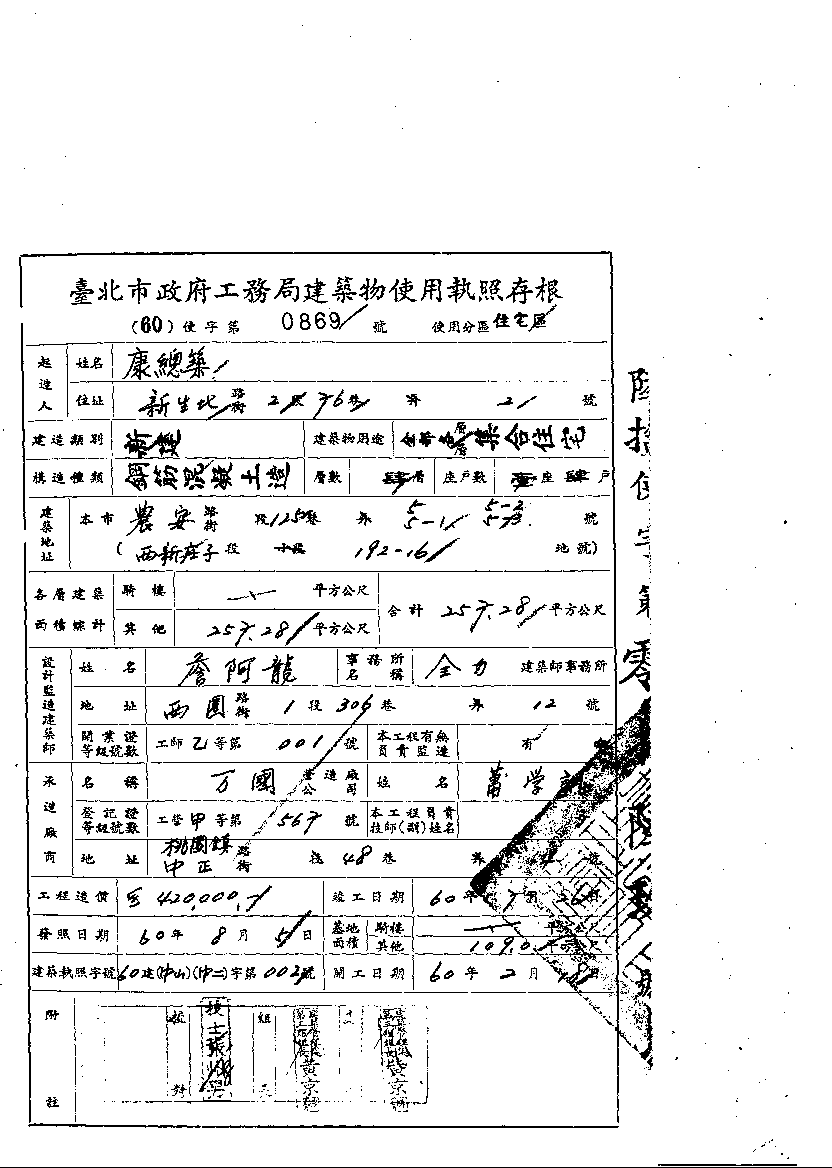 臺北市政府工務局建築物使用執照存根
(60)使字第 0869 號 使用分區 住宅區
起造人 姓名 康總築
住址 新生北路街 2段 76巷 弄 21 號
建造類別 新建 建築物用途 全部各層 集合住宅
構造種類 鋼筋混凝土造 層數 肆層 座戶數 壹座 肆戶
建築地址 本市 農安路街 段 125巷 弄 5 5-1 5-2 5-3 號
(西新庄子段 小段 192-16 地號)
各層建築面積總計 騎樓 平方公尺 合計 257.28 平方公尺
其他 257.28 平方公尺
設計監造建築師 姓名 詹阿龍 事務所名稱 全力 建築師事務所
地址 西園路街 1段 306巷 弄 12 號
開業證等級號數 工師乙等第 001 號 本工程有無負責監造 有
承造廠商 名稱 万國 營造廠公司 姓名 蕭学
登記證等級號數 工營甲等第 567 號 本工程負責技師(副)姓名
地址 桃園鎮中正路街 段 48巷 弄 號
工程造價 420,000.- 竣工日期 60年 7月 26日
發照日期 60年 8月 5日 基地面積 騎樓
其他 109.0
建築執照字號 60建(中山)(中二)字第 002 號 開工日期 60年 2月 18日
附註 校對 技士 組 三 黃京
陸拾使字第零